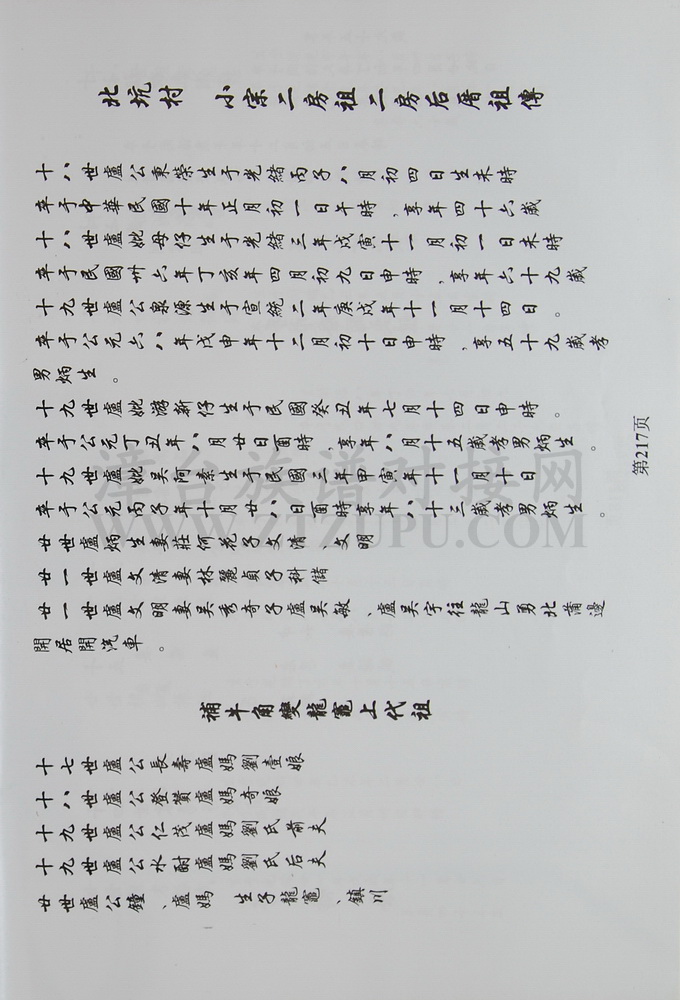 北坑村 小宗二房祖二房后厝祖傳
十八世盧公東榮生于光緒丙子八月初四日生未時
卒于中華民國十年正月初一日午時，享年四十六歲
十八世盧妣母仔生于光緒三年戊寅十一月初一日未時
卒于民國卅六年丁亥年四月初九日申時，享年六十九歲
十九世盧公泉源生于宣統二年庚戌年十一月十四日。
卒于公元六八年戊申年十二月初十日申時，享五十九歲孝
男炳生。
十九世盧妣游新仔生于民國癸丑年七月十四日申時。
卒于公元丁丑年八月廿日酉時，享年八月十五歲孝男炳生。
十九世盧妣吴阿素生于民國三年甲寅年十一月十日
卒于公元丙子年十月廿八日酉時享年八十三歲孝男炳生。
廿世盧炳生妻莊何花子文清、文明
廿一世盧文清妻林麗貞子科儲
廿一世盧文明妻吴秀奇子盧吴敏、盧吴宇往龍山勇北蒲邊
開居開汽車。
補牛角孿龍竈上代祖
十七世盧公長壽盧媽劉壹娘
十八世盧公登贊盧媽奇娘
十九世盧公仁茂盧媽劉氏前夫
十九世盧公水酎盧媽劉氏后夫
廿世盧公鐘、盧媽 生子龍竈、鎮川
第217页
漳台族谱对接网
WWW.ZTZUPU.COM